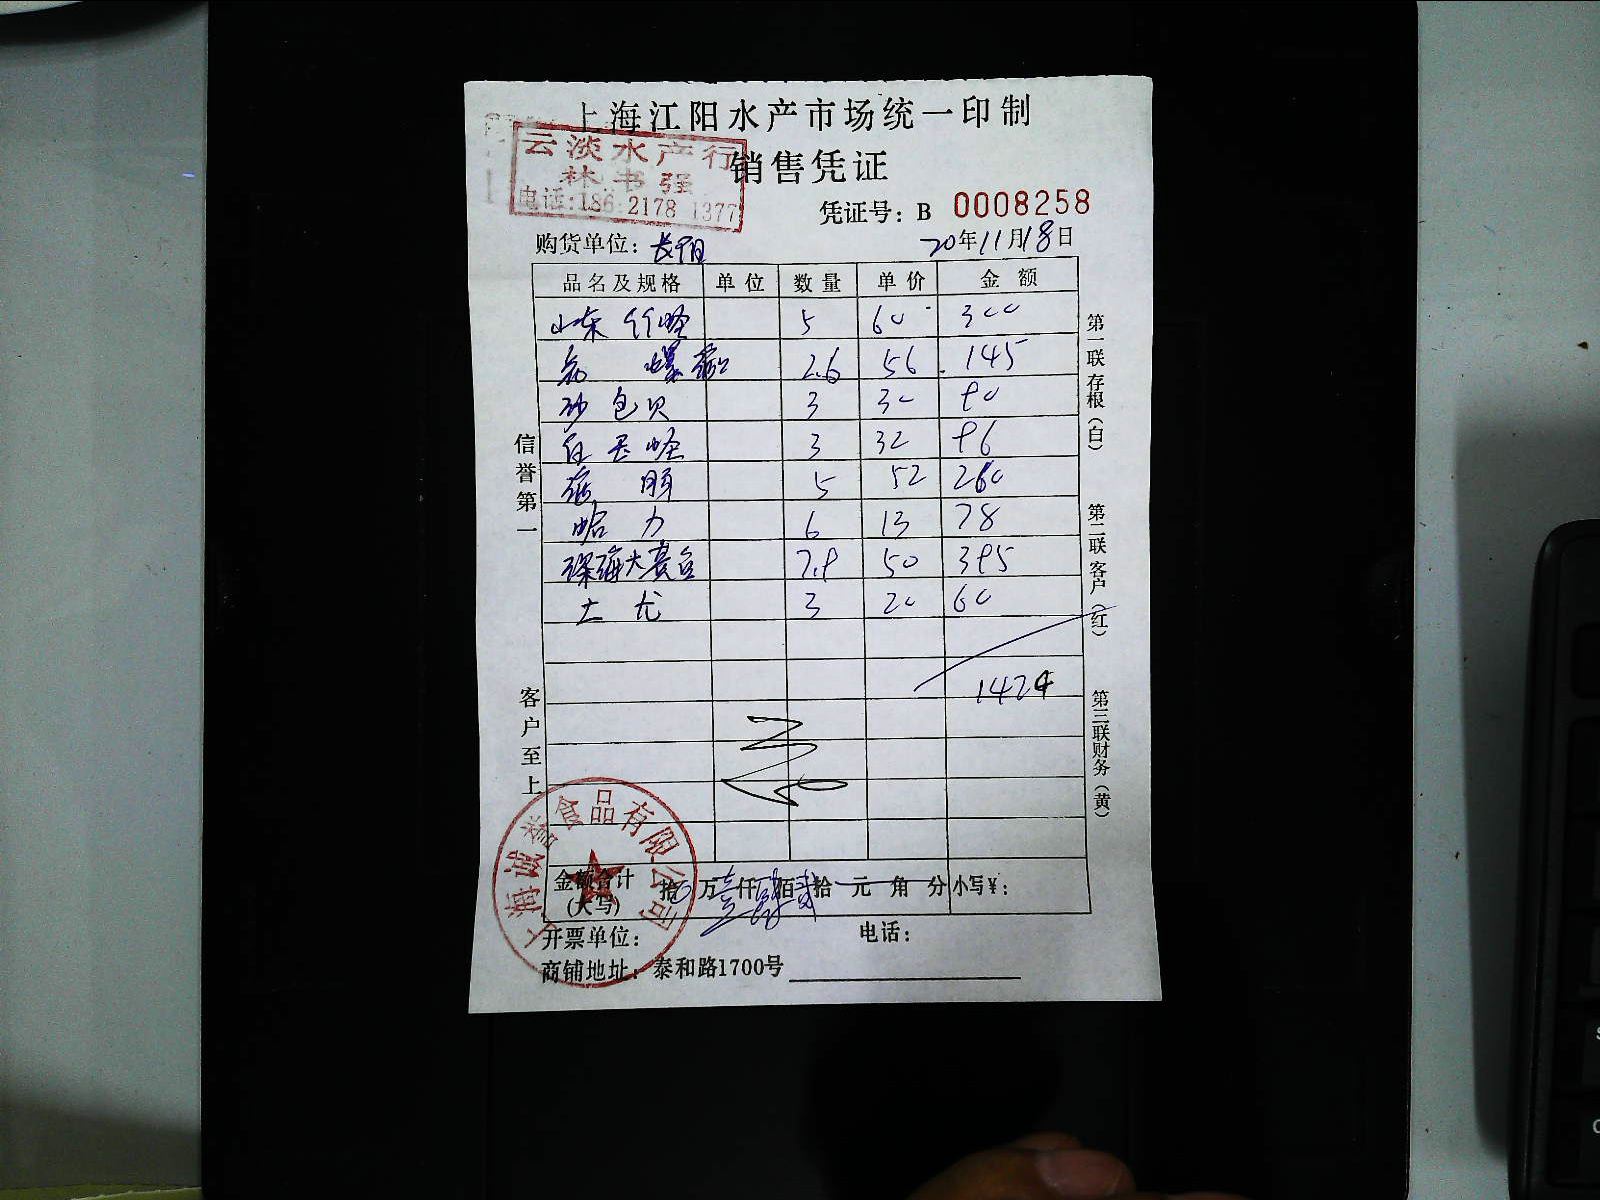 上海江阳水产市场统一印制
云淡水产行
林书强
电话:186 2178 1377
销售凭证
凭证号：B 0008258
购货单位：长阳
20年11月18日
品名及规格 单位 数量 单价 金额
山东竹蛏 5 60 300
2.6 56 145
砂包贝 3 30 90
3 32 96
5 52 260
哈力 6 13 78
深海大黄鱼 7.9 50 395
土龙 3 20 60
1424
信誉第一
客户至上
第一联存根（白）
第二联客户（红）
第三联财务（黄）
上海诚益食品有限公司
金额合计
(大写)
拾 万壹仟肆佰贰拾 元 角 分 小写￥：
开票单位： 电话：
商铺地址：泰和路1700号